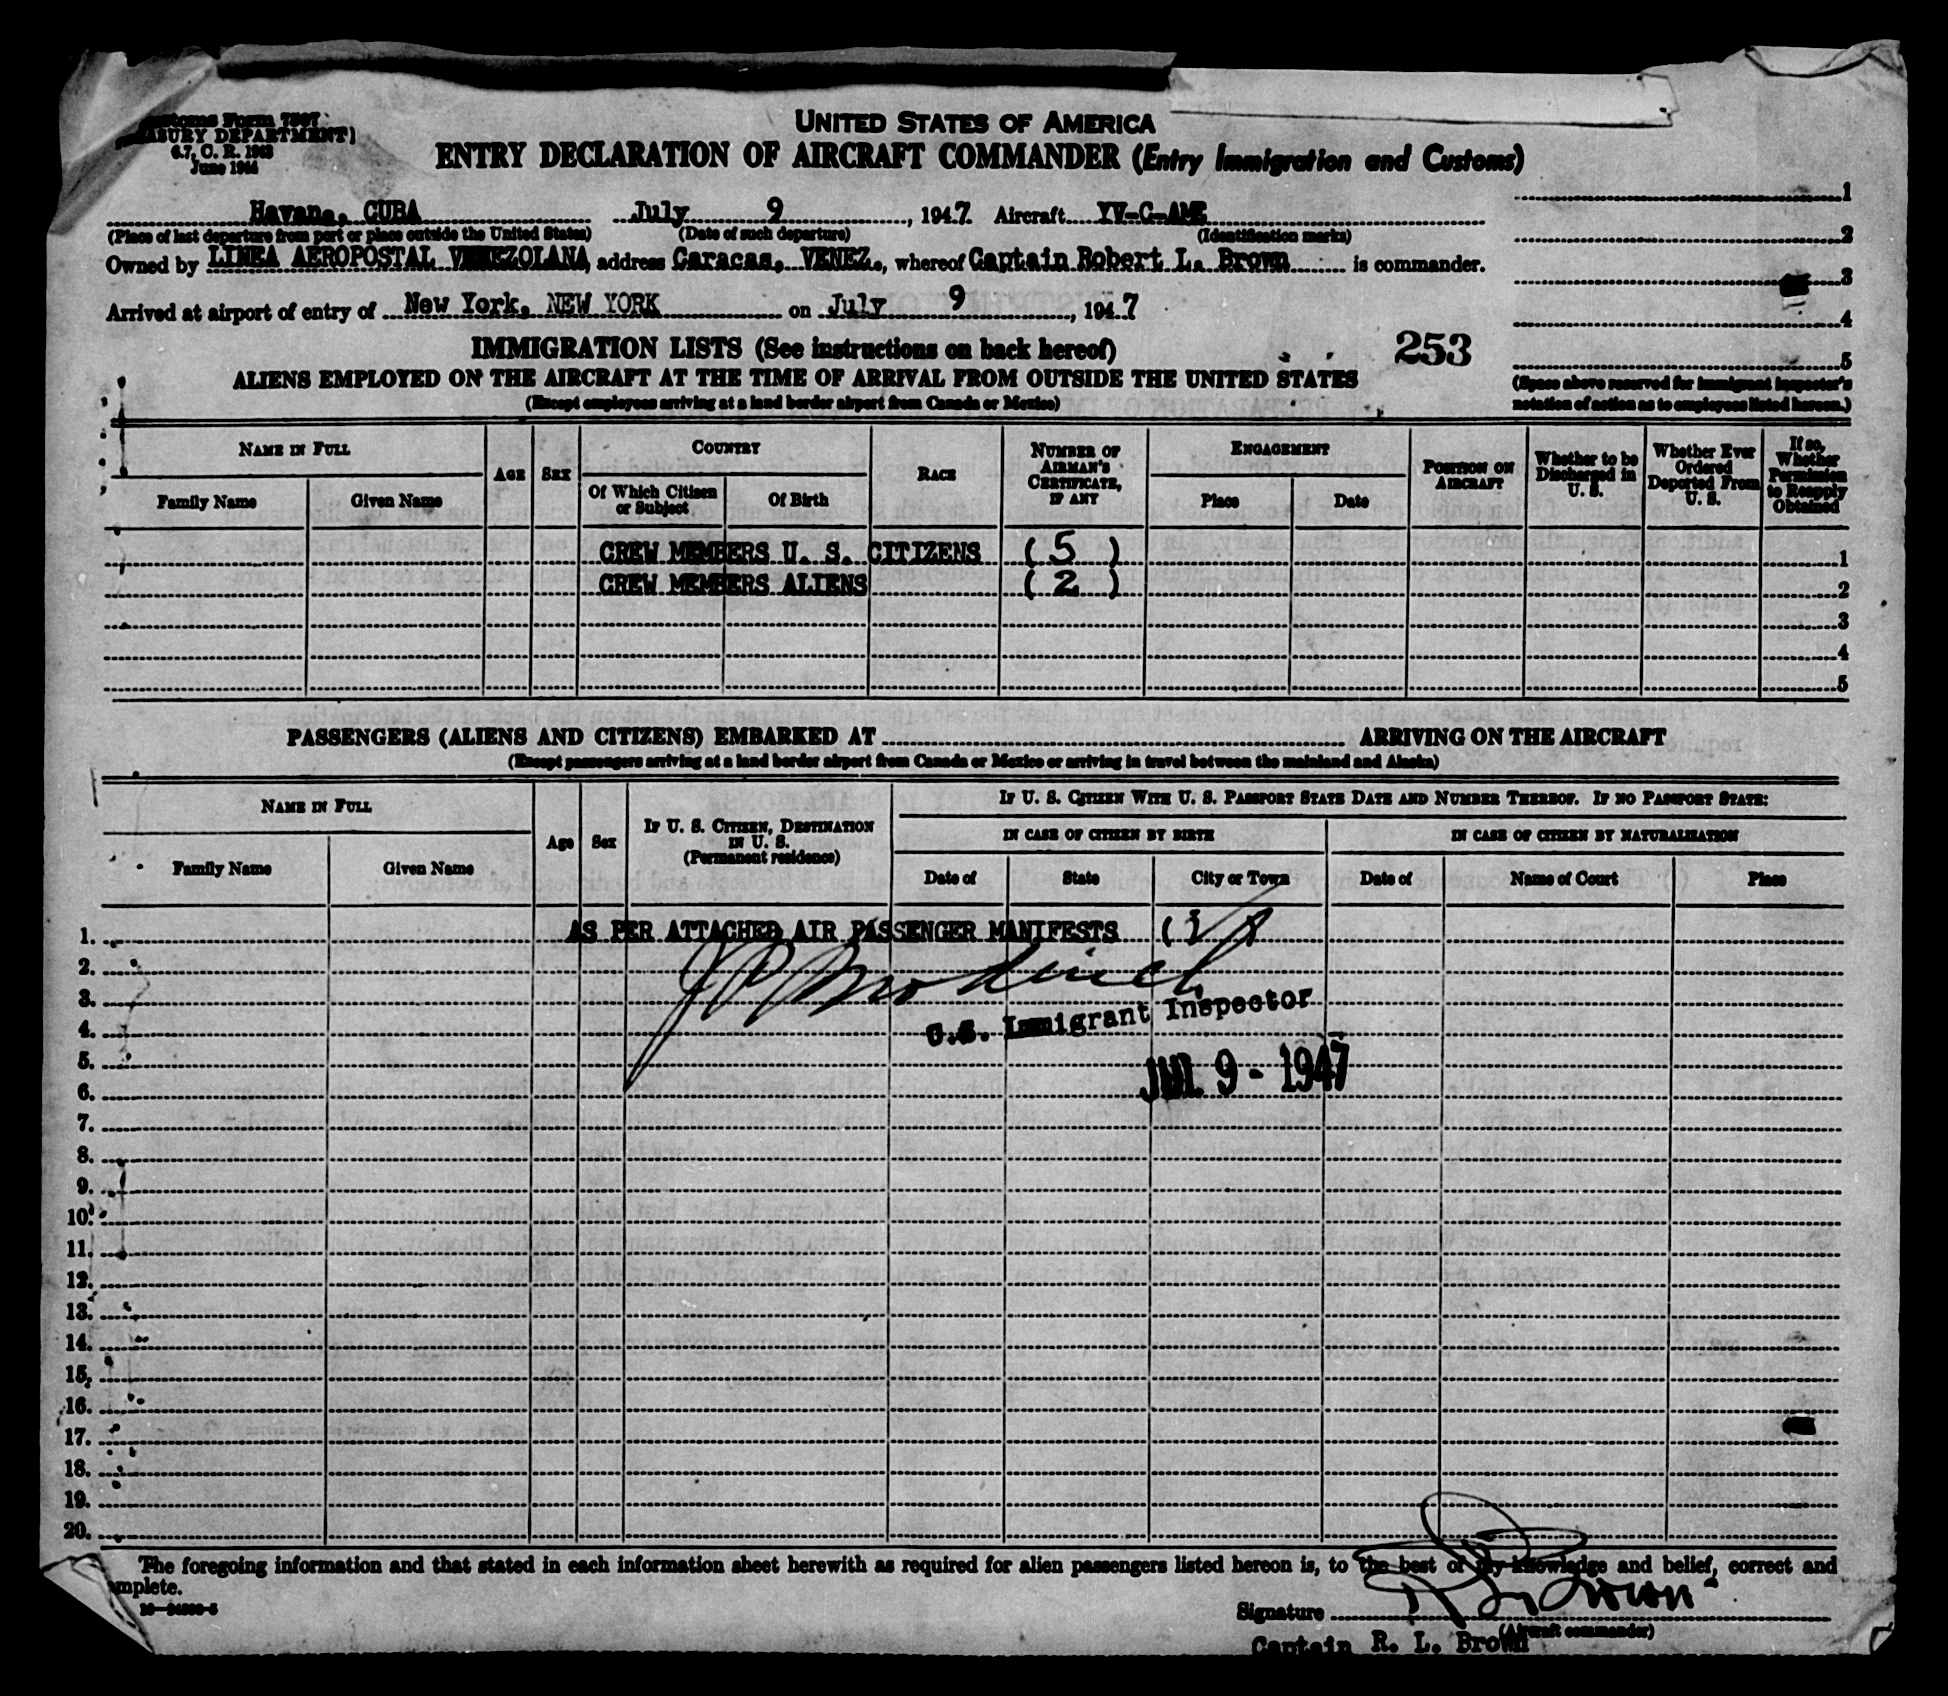 Customs Form 7507
(TREASURY DEPARTMENT)
C. R. 1943
June 1944
UNITED STATES OF AMERICA
ENTRY DECLARATION OF AIRCRAFT COMMANDER (Entry Immigration and Customs)
Havana, CUBA July 9, 1947. Aircraft YV-C-AME
(Place of last departure from port or place outside the United States) (Date of such departure) (Identification marks)
Owned by LINEA AEROPOSTAL VENEZOLANA, address Caracas, VENEZ., whereof Captain Robert L. Brown is commander.
Arrived at airport of entry of New York, NEW YORK on July 9, 1947
1
2
3
4
5
(Space above reserved for immigrant inspector's
notation of action as to employees listed hereon.)
IMMIGRATION LISTS (See instructions on back hereof) 253
ALIENS EMPLOYED ON THE AIRCRAFT AT THE TIME OF ARRIVAL FROM OUTSIDE THE UNITED STATES
(Except employees arriving at a land border airport from Canada or Mexico)
NAME IN FULL
Family Name Given Name
AGE
SEX
COUNTRY
Of Which Citizen or Subject Of Birth
RACE
NUMBER OF AIRMAN'S CERTIFICATE, IF ANY
ENGAGEMENT
Place Date
POSITION ON AIRCRAFT
Whether to be Discharged in U. S.
Whether Ever Ordered Deported From U. S.
If so, Whether Permission to Reapply Obtained
CREW MEMBERS U. S. CITIZENS ( 5 ) 1
CREW MEMBERS ALIENS ( 2 ) 2
3
4
5
PASSENGERS (ALIENS AND CITIZENS) EMBARKED AT ARRIVING ON THE AIRCRAFT
(Except passengers arriving at a land border airport from Canada or Mexico or arriving in travel between the mainland and Alaska)
NAME IN FULL
Family Name Given Name
Age
Sex
IF U. S. CITIZEN, DESTINATION IN U. S.
(Permanent residence)
IF U. S. CITIZEN WITH U. S. PASSPORT STATE DATE AND NUMBER THEREOF. IF NO PASSPORT STATE:
IN CASE OF CITIZEN BY BIRTH IN CASE OF CITIZEN BY NATURALIZATION
Date of State City or Town Date of Name of Court Place
1. AS PER ATTACHED AIR PASSENGER MANIFESTS
2.
3.
U.S. Immigrant Inspector
4.
5.
JUL 9 - 1947
6.
7.
8.
9.
10.
11.
12.
13.
14.
15.
16.
17.
18.
19.
20.
The foregoing information and that stated in each information sheet herewith as required for alien passengers listed hereon is, to the best of my knowledge and belief, correct and
omplete.
Signature R L Brown
(Aircraft commander)
Captain R. L. Brown